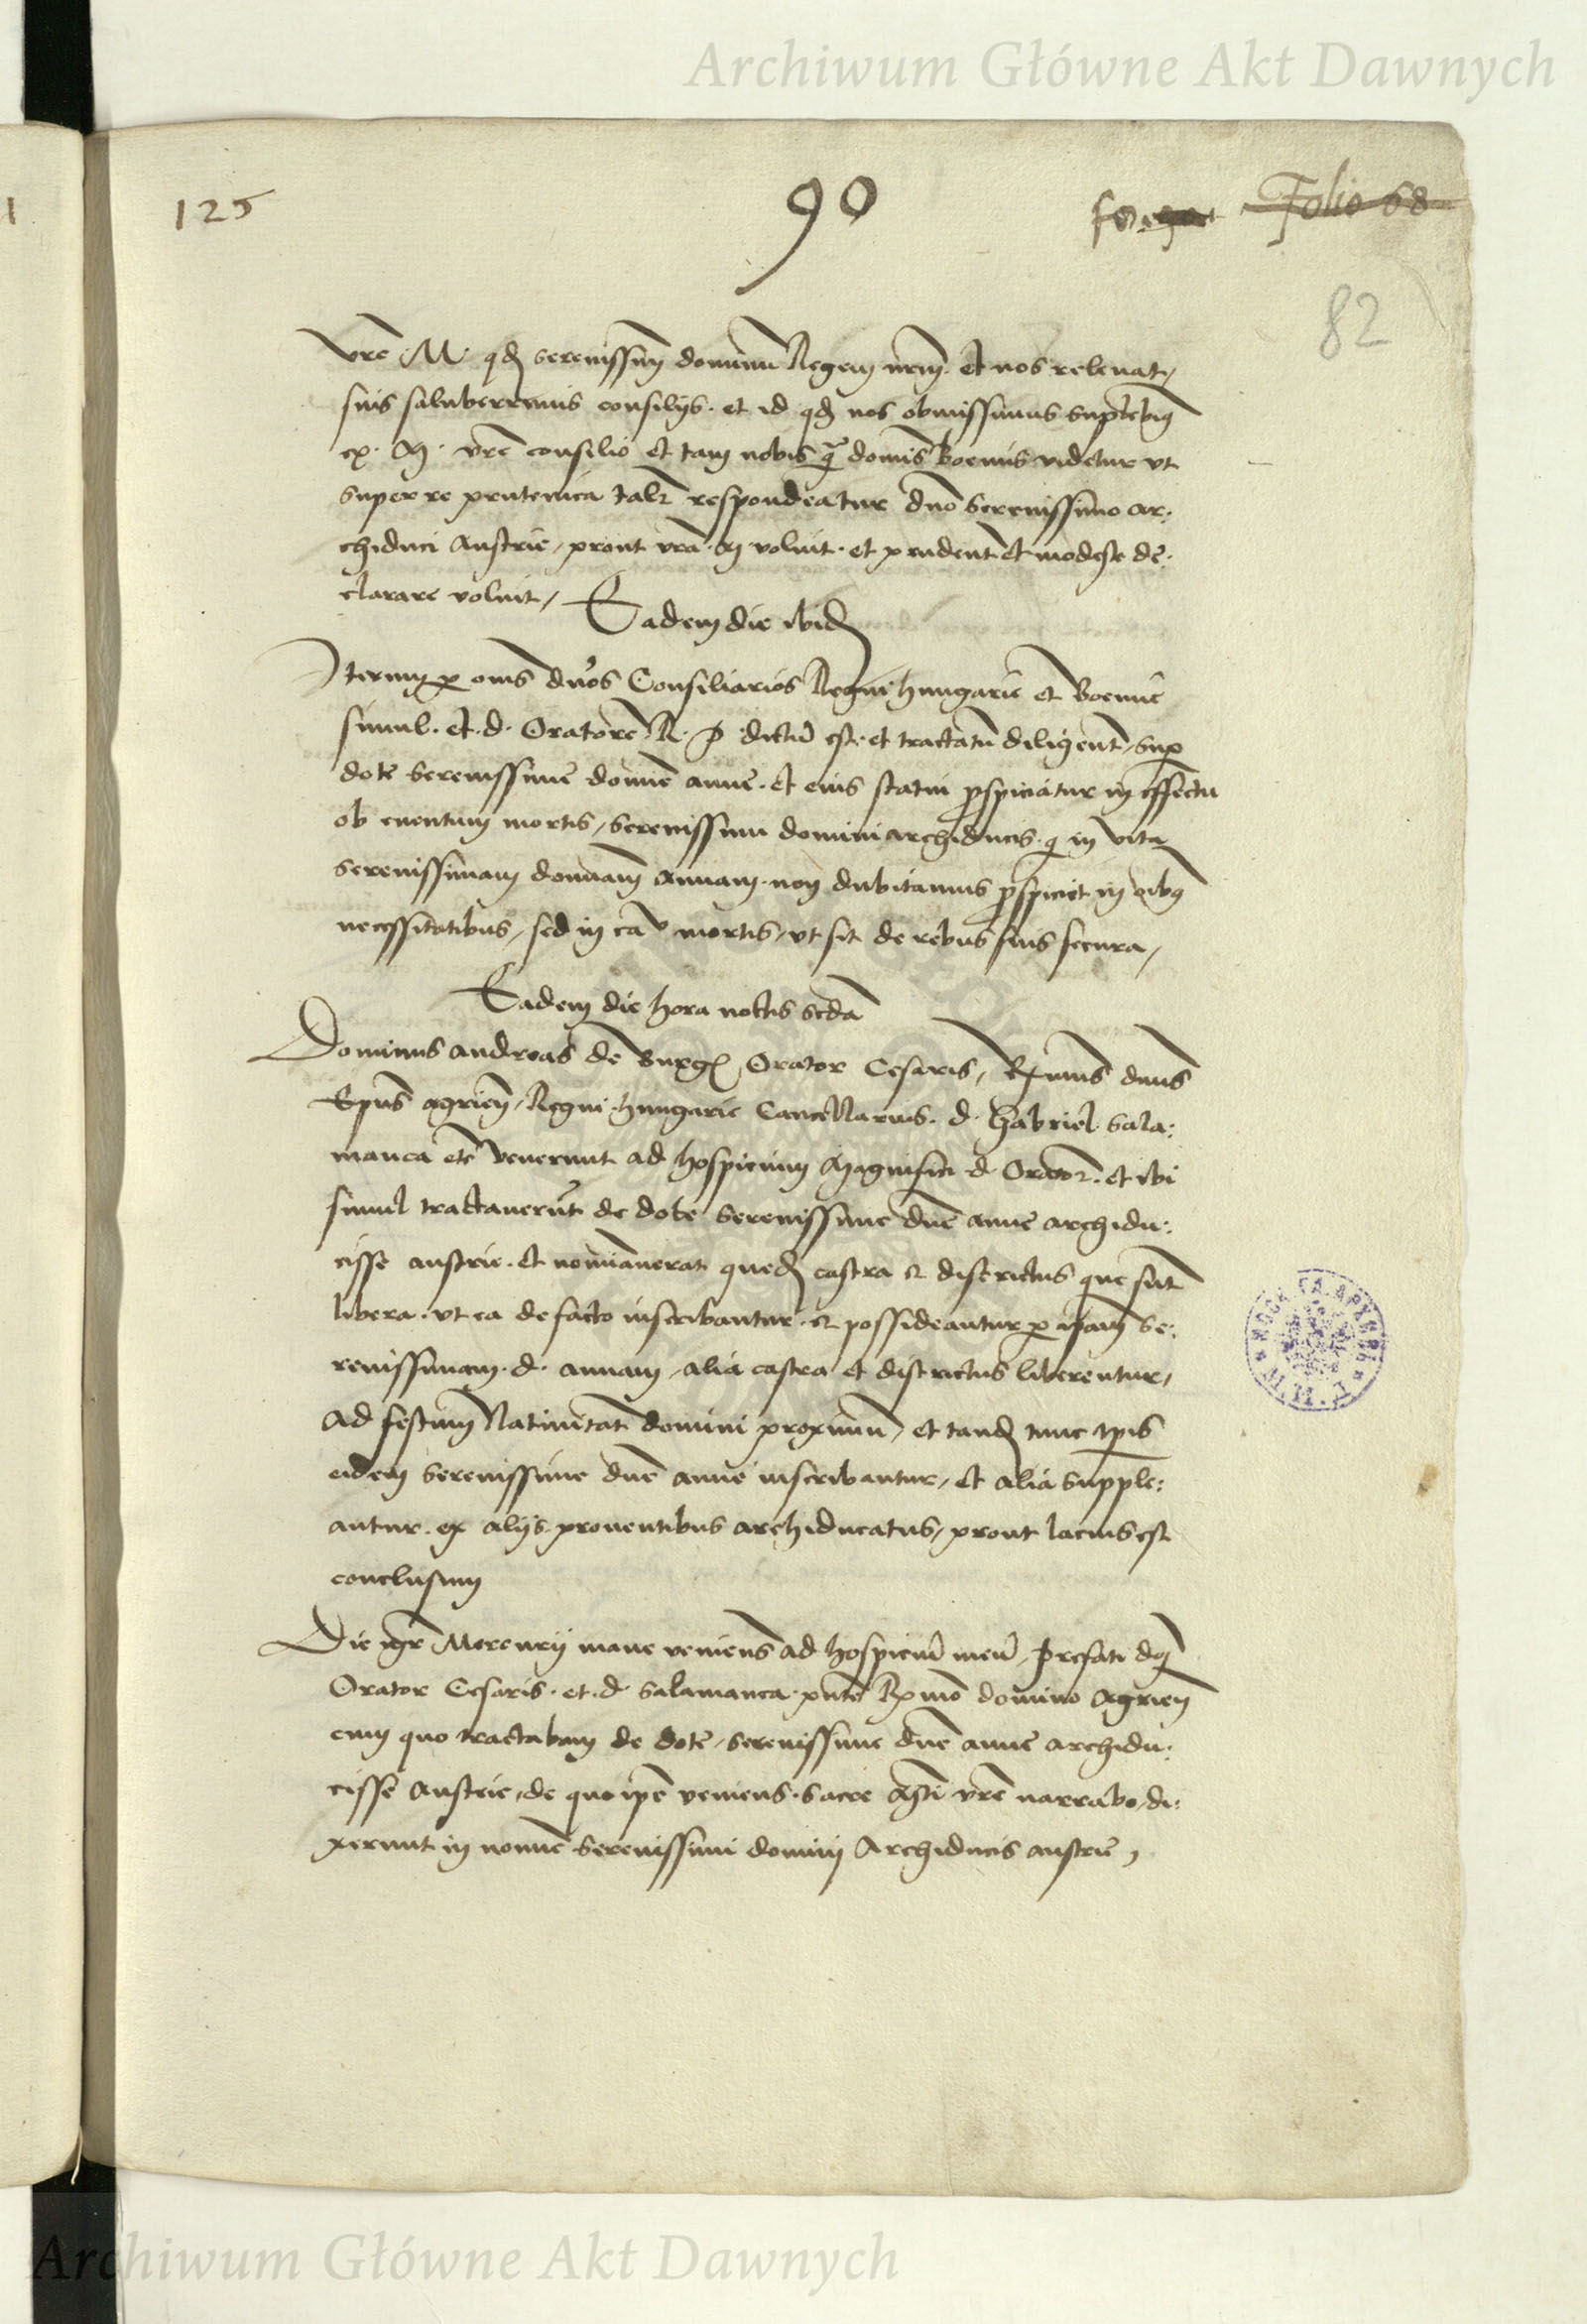 Archiwum Główne Akt Dawnych
125
90
Folio 68
82
vre M. qd serenissim dominu Regem nrm. et nos relevat,
suis saluberrimis consilijs. et id qd nos obmissimus suplebim
ex. M. vre consilio et tam nobis q domis Boemis videtur vt
super re prutenica talr respondeatur dno serenissimo ar:
chiduci Austrie, prout vra. M. voluit. et prudent et modeste de:
clarare voluit,
Eadem die ibid
Iterum p oms dnos Consiliarios Regni hungarie et Boemie
simul. et. d. Oratore R. P dictu est. et tractatu diligent, sup
dote serenissime domine anne. et eius statui prospiciatur in effectu
ob euentum mortis, serenissimi domini archiducis. q in vita
serenissimam dominam Annam. non dubitamus prospiciet in oibq
necessitatibus, sed in cau mortis, vt sit de rebus suis secura,
Eadem die hora noctis scda
Dominus andreas de Burgo, Orator Cesaris, Rximus dnus
Epus agrien, Regni hungarie Cancellarius. d. Gabriel sala:
manca etc venerunt ad hospicium Magnifici d. Orator. et ibi
simul tractauerut de dote serenissime dne anne archidu:
cisse austrie. et nominauerat qued castra et districtus que sut
libera. vt ea de facto inscribantur. et possideantur p ipam se:
renissimam. d. annam, alia castra et districtus liberentur,
ad festum Natiuitat domini proximu, et tand tunc tpis
eidem serenissime dne anne inscribantur, et alia supple:
antur. ex alijs prouentibus archiducatus, prout lacius est
conclusum
Die igr Mercurij mane veniens ad hospiciu meu, Prefati dni
Orator Cesaris. et. d. Salamanca. pnte Rximo domino Agrien
cum quo tractabam de dote, serenissime dne anne archidu:
cisse Austrie, de quo ipe veniens. sacre Mti vre narrabo, di:
xerunt in nomine serenissimi domini Archiducis austrie,
Archiwum Główne Akt Dawnych